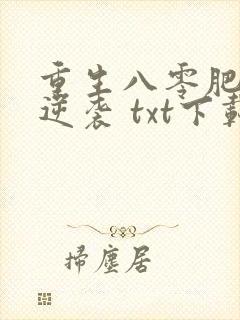 重生八零肥
逆袭 txt下载
掃塵居